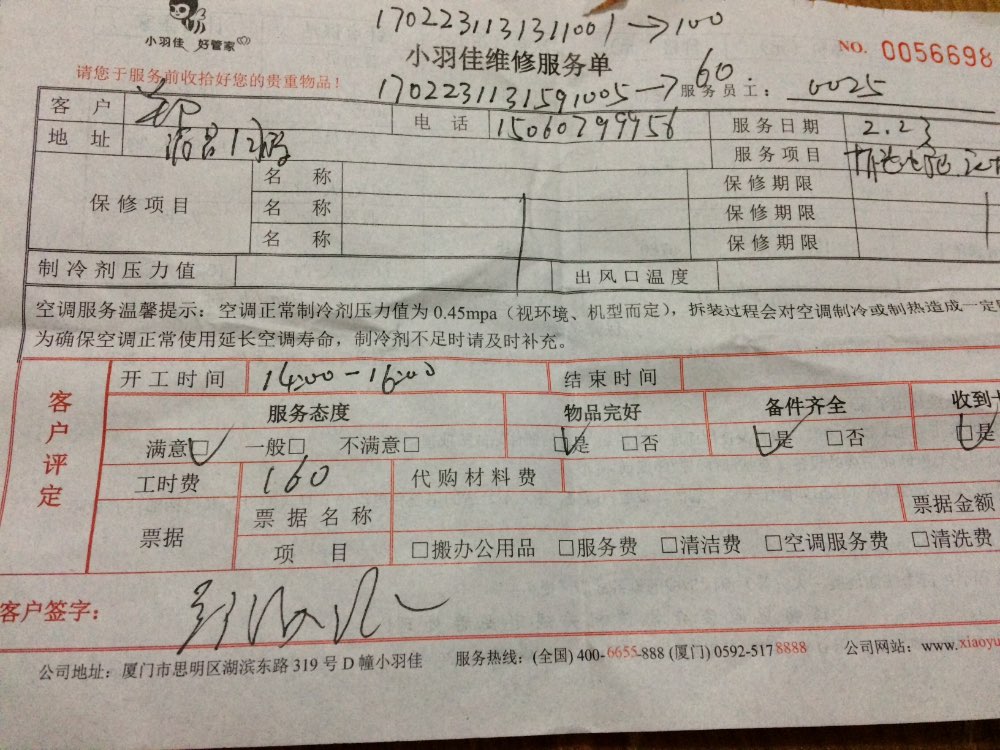 1702231131311001→100
小羽佳 好管家
小羽佳维修服务单
NO. 0056698
请您于服务前收拾好您的贵重物品!
1702231131591005→60
服务员工: 0025
客户 电话 15060799956 服务日期 2.23
地址 服务项目
保修项目 名称 保修期限
名称 保修期限
名称 保修期限
制冷剂压力值 出风口温度
空调服务温馨提示:空调正常制冷剂压力值为 0.45mpa(视环境、机型而定),拆装过程会对空调制冷或制热造成一定
为确保空调正常使用延长空调寿命,制冷剂不足时请及时补充。
客户评定
开工时间 14:00-16:00 结束时间
服务态度 物品完好 备件齐全 收到
满意☑ 一般□ 不满意□ ☑是 □否 ☑是 □否 ☑是
工时费 160 代购材料费
票据 票据名称 票据金额
项目 □搬办公用品 □服务费 □清洁费 □空调服务费 □清洗费
客户签字:
公司地址:厦门市思明区湖滨东路 319 号 D 幢小羽佳 服务热线:(全国) 400-6655-888 (厦门) 0592-5178888 公司网站:www.xiaoyu